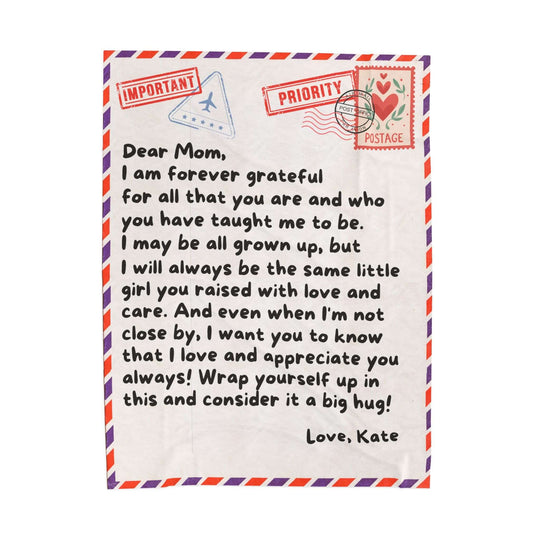 IMPORTANT
PRIORITY
POSTAGE
Dear Mom,
I am forever grateful
for all that you are and who
you have taught me to be.
I may be all grown up, but
I will always be the same little
girl you raised with love and
care. And even when I'm not
close by, I want you to know
that I love and appreciate you
always! Wrap yourself up in
this and consider it a big hug!
Love, Kate